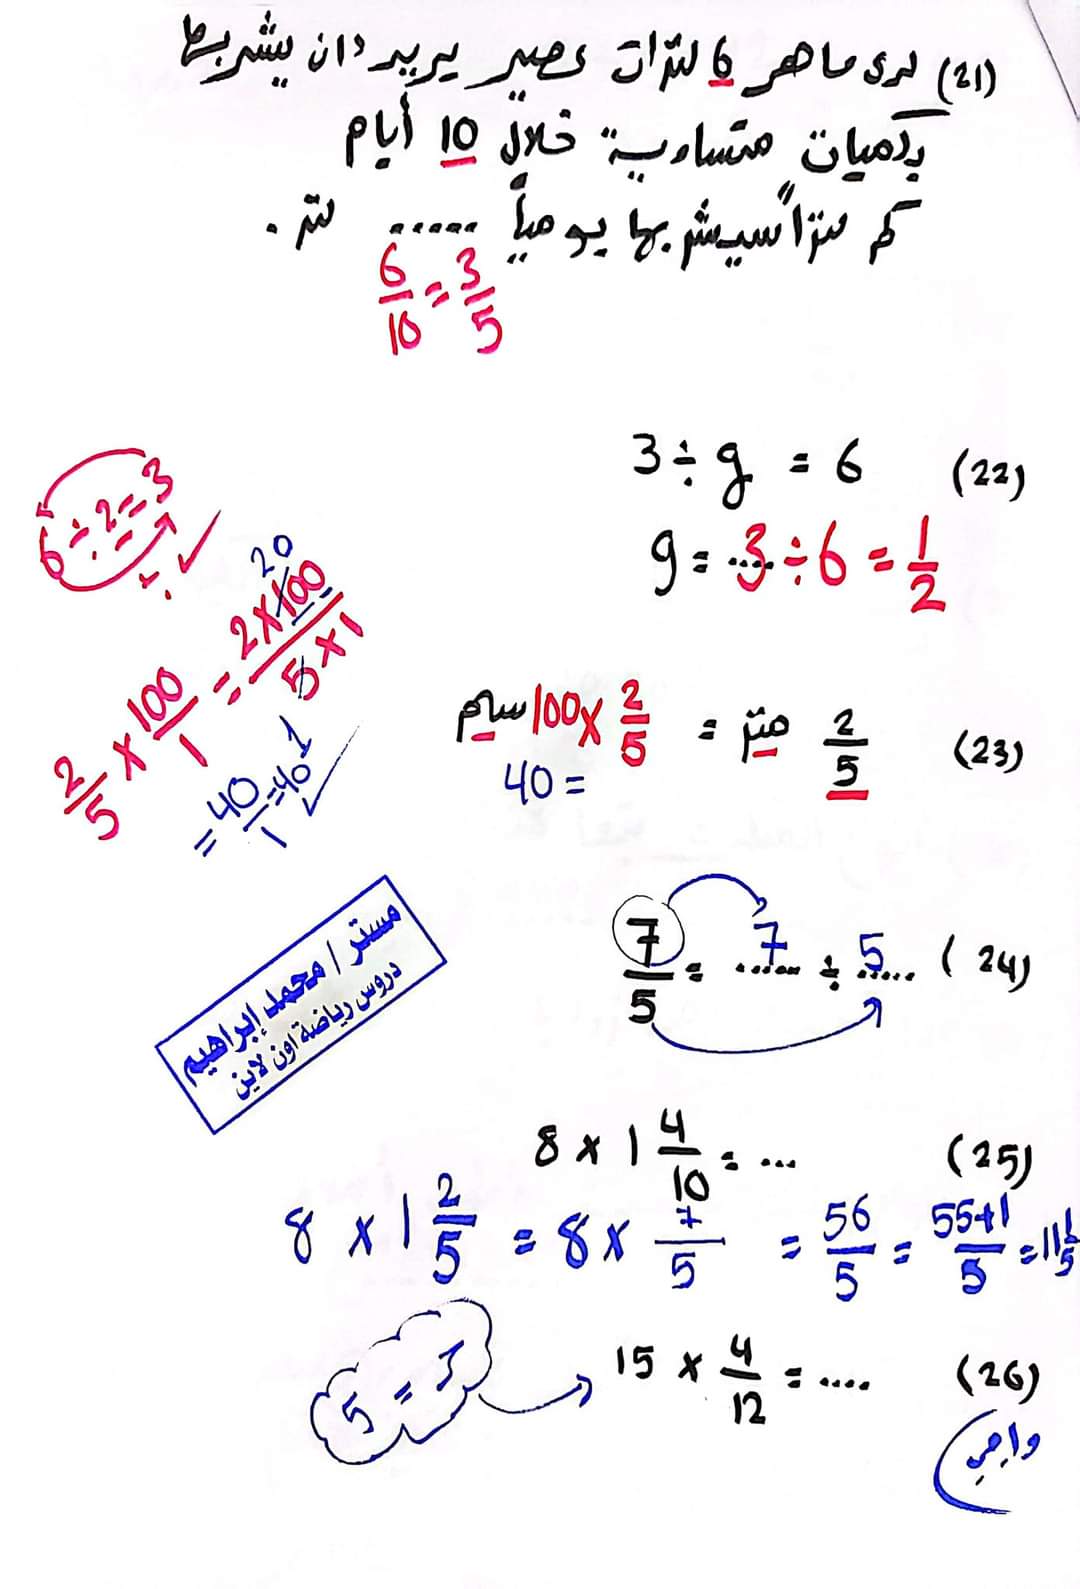 (21) لدى ماهر 6 لترات عصير يريد ان يشربها
بكميات متساوية خلال 10 أيام
كم لتراً سيشربها يومياً ..... لتر .
6/10 = 3/5
(22) 3 ÷ g = 6
g = .... 3 ÷ 6 = 1/2
6 ÷ 2 = 3
(23) 2/5 متر = 2/5 × 100 سم
40 =
2/5 × 100/1 = 2 × 100/5 × 1
20
1
= 40/1 = 40
(24) 7/5 = ..7.. ÷ ..5..
مستر / محمد إبراهيم
دروس رياضة اون لاين
(25) 8 × 1 4/10 = ...
8 × 1 2/5 = 8 × 7/5 = 56/5 = 55+1/5 = 11 1/5
(26) 15 × 4/12 = ....
5 = ج
واجب